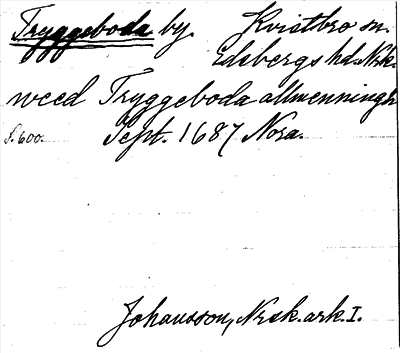 Tryggeboda by. Kvistbro sn.
Edsbergs hd. Nrk.
weed Tryggeboda allmenningh
s. 600. Sept. 1687 Nora.
Johansson, Nrsk. ark. I.